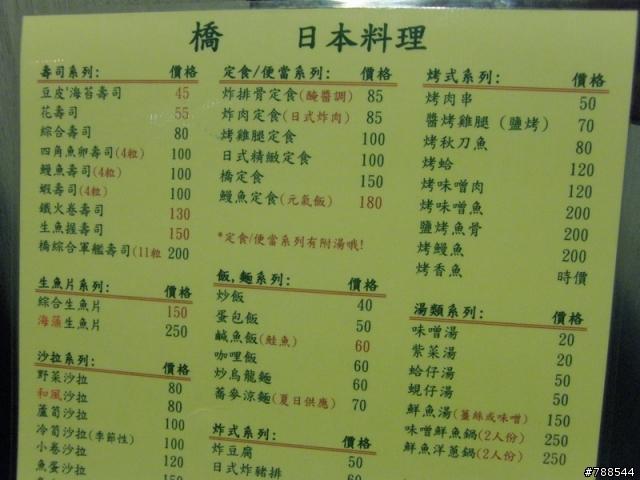 橋 日本料理
壽司系列: 價格
豆皮'海苔壽司 45
花壽司 55
綜合壽司 80
四角魚卵壽司(4粒) 100
鰻魚壽司(4粒) 100
蝦壽司(4粒) 100
鐵火卷壽司 130
生魚握壽司 150
橋綜合軍艦壽司(11粒 200
生魚片系列: 價格
綜合生魚片 150
海藻生魚片 250
沙拉系列: 價格
野菜沙拉 80
和風沙拉 80
蘆筍沙拉 100
冷筍沙拉(季節性) 100
小卷沙拉 120
魚蛋沙拉 150
定食/便當系列: 價格
炸排骨定食(醃醬調) 85
炸肉定食(日式炸肉) 85
烤雞腿定食 100
日式精緻定食 100
橋定食 150
鰻魚定食(元氣飯) 180
*定食/便當系列有附湯哦!
飯,麵系列: 價格
炒飯 40
蛋包飯 50
鹹魚飯(鮭魚) 60
咖哩飯 60
炒烏龍麵 60
蕎麥涼麵(夏日供應) 70
炸式系列: 價格
炸豆腐 50
日式炸豬排 60
烤式系列: 價格
烤肉串 50
醬烤雞腿 (鹽烤) 70
烤秋刀魚 80
烤蛤 120
烤味噌肉 120
烤味噌魚 200
鹽烤魚骨 200
烤鰻魚 200
烤香魚 時價
湯類系列: 價格
味噌湯 20
紫菜湯 20
蛤仔湯 50
蜆仔湯 50
鮮魚湯(薑絲或味噌) 150
味噌鮮魚鍋(2人份) 250
鮮魚洋蔥鍋(2人份) 250
#788544